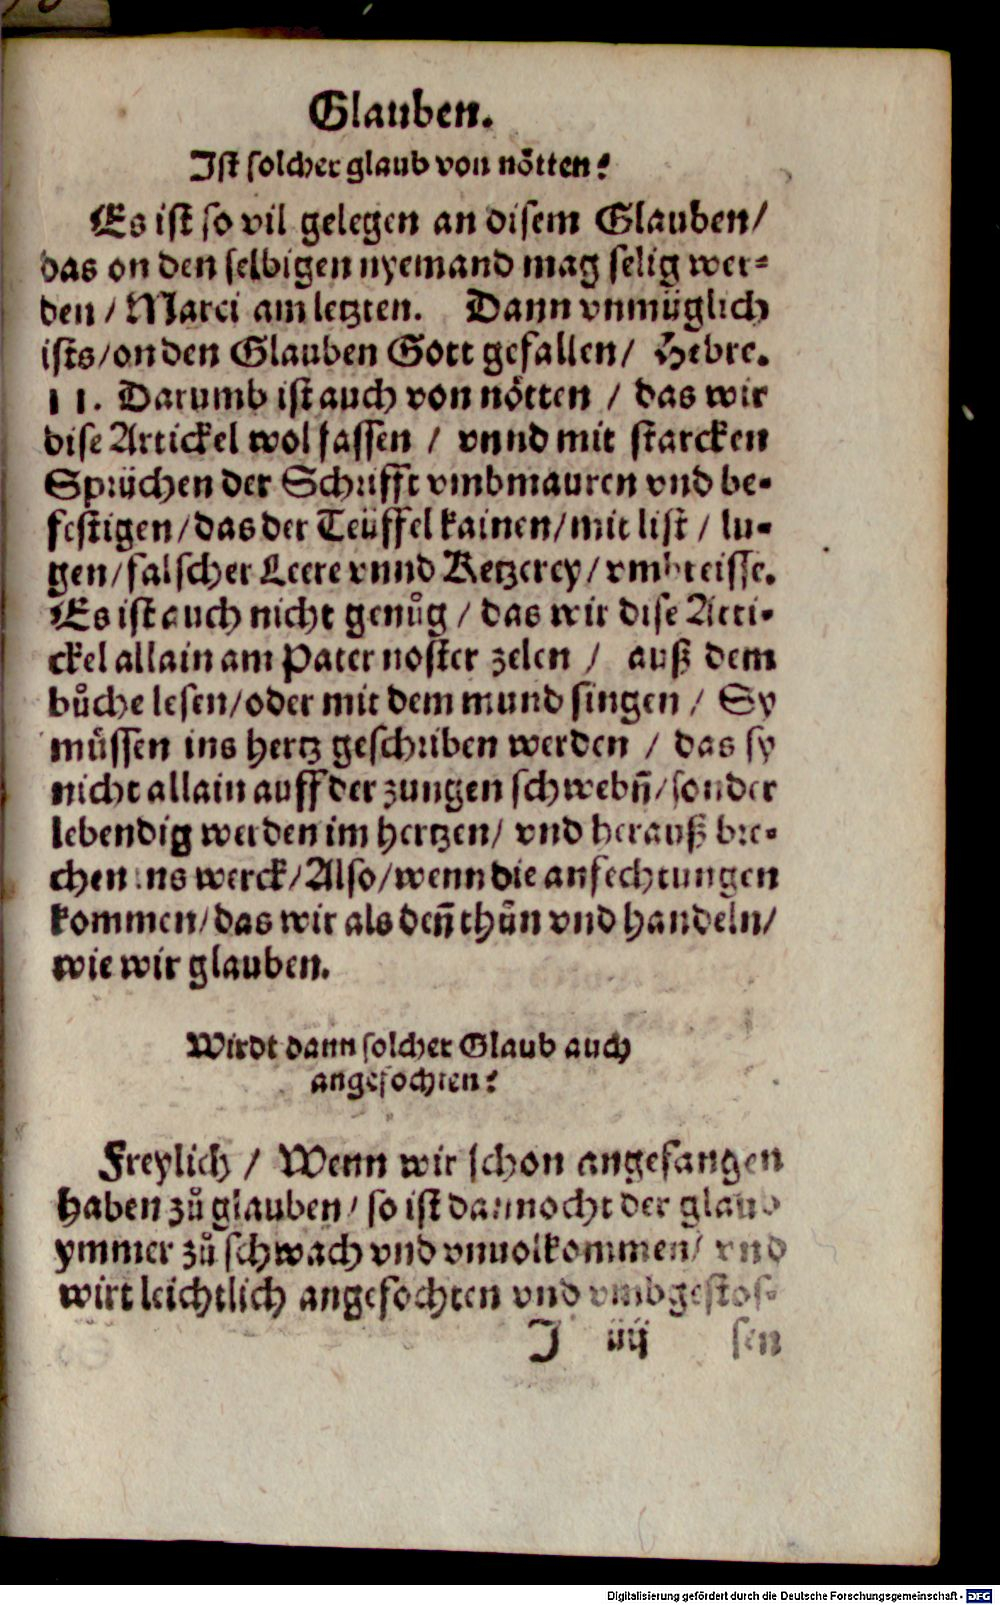 Glauben.
Ist solcher glaub von nötten?
Es ist so vil gelegen an disem Glauben/
das on den selbigen nyemand mag selig wer-
den / Marci am letzten. Dann vnmüglich
ists/ on den Glauben Gott gefallen/ Hebre.
11. Darumb ist auch von nötten / das wir
dise Artickel wol fassen / vnnd mit starcken
Sprüchen der Schrifft vmbmauren vnd be-
festigen/ das der Teüffel kainen/ mit list / lu-
gen/ falscher Leere vnnd Ketzerey/ vmbreisse.
Es ist auch nicht genůg / das wir dise Arti-
ckel allain am Pater noster zelen / auß dem
bůche lesen/ oder mit dem mund singen / Sy
müssen ins hertz geschriben werden / das sy
nicht allain auff der zungen schwebn̄/ sonder
lebendig werden im hertzen/ vnd herauß bre-
chen ins werck/ Also/ wenn die anfechtungen
kommen/ das wir als den̄ thůn vnd handeln/
wie wir glauben.
Wirdt dann solcher Glaub auch
angefochten?
Freylich / Wenn wir schon angefangen
haben zů glauben/ so ist dannocht der glaub
ymmer zů schwach vnd vnuolkommen/ vnd
wirt leichtlich angefochten vnd vmbgestos-
J iiij sen
Digitalisierung gefördert durch die Deutsche Forschungsgemeinschaft - DFG